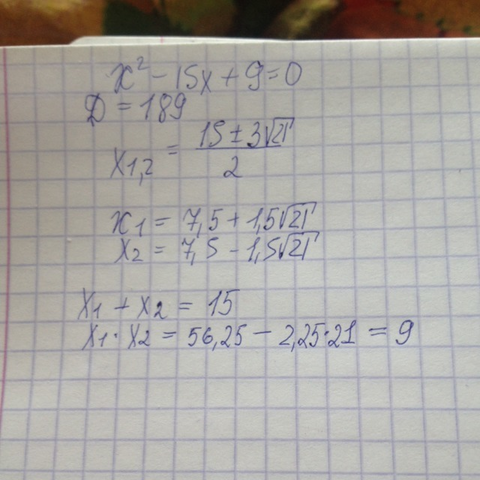 x² - 15x + 9 = 0
D = 189
x₁,₂ = (15 ± 3√21) / 2
x₁ = 7,5 + 1,5√21
x₂ = 7,5 - 1,5√21
x₁ + x₂ = 15
x₁ · x₂ = 56,25 - 2,25·21 = 9